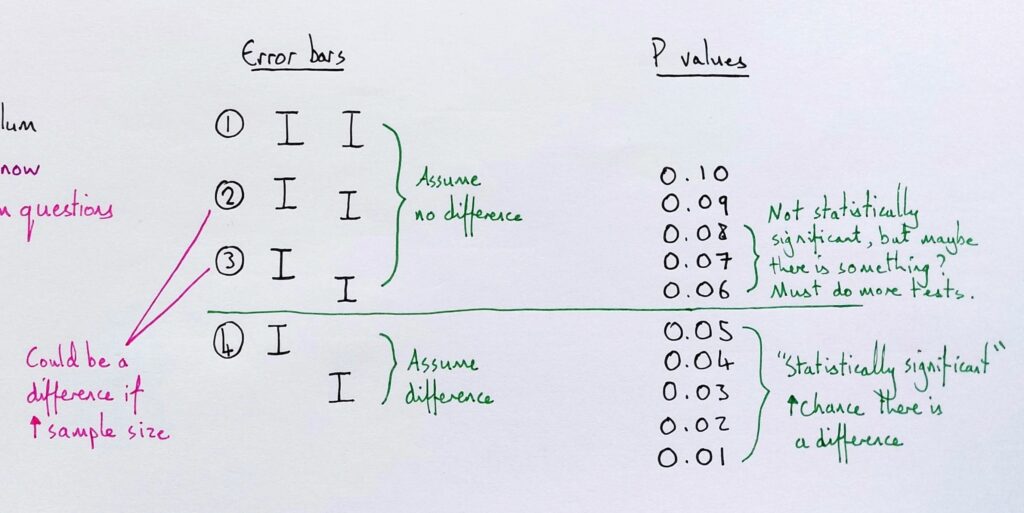 Error bars
P values
lum
now
questions
①
②
③
④
Assume
no difference
Assume
difference
Could be a
difference if
↑ sample size
0.10
0.09
0.08
0.07
0.06
0.05
0.04
0.03
0.02
0.01
Not statistically
significant, but maybe
there is something?
Must do more tests.
"Statistically significant"
↑ chance there is
a difference